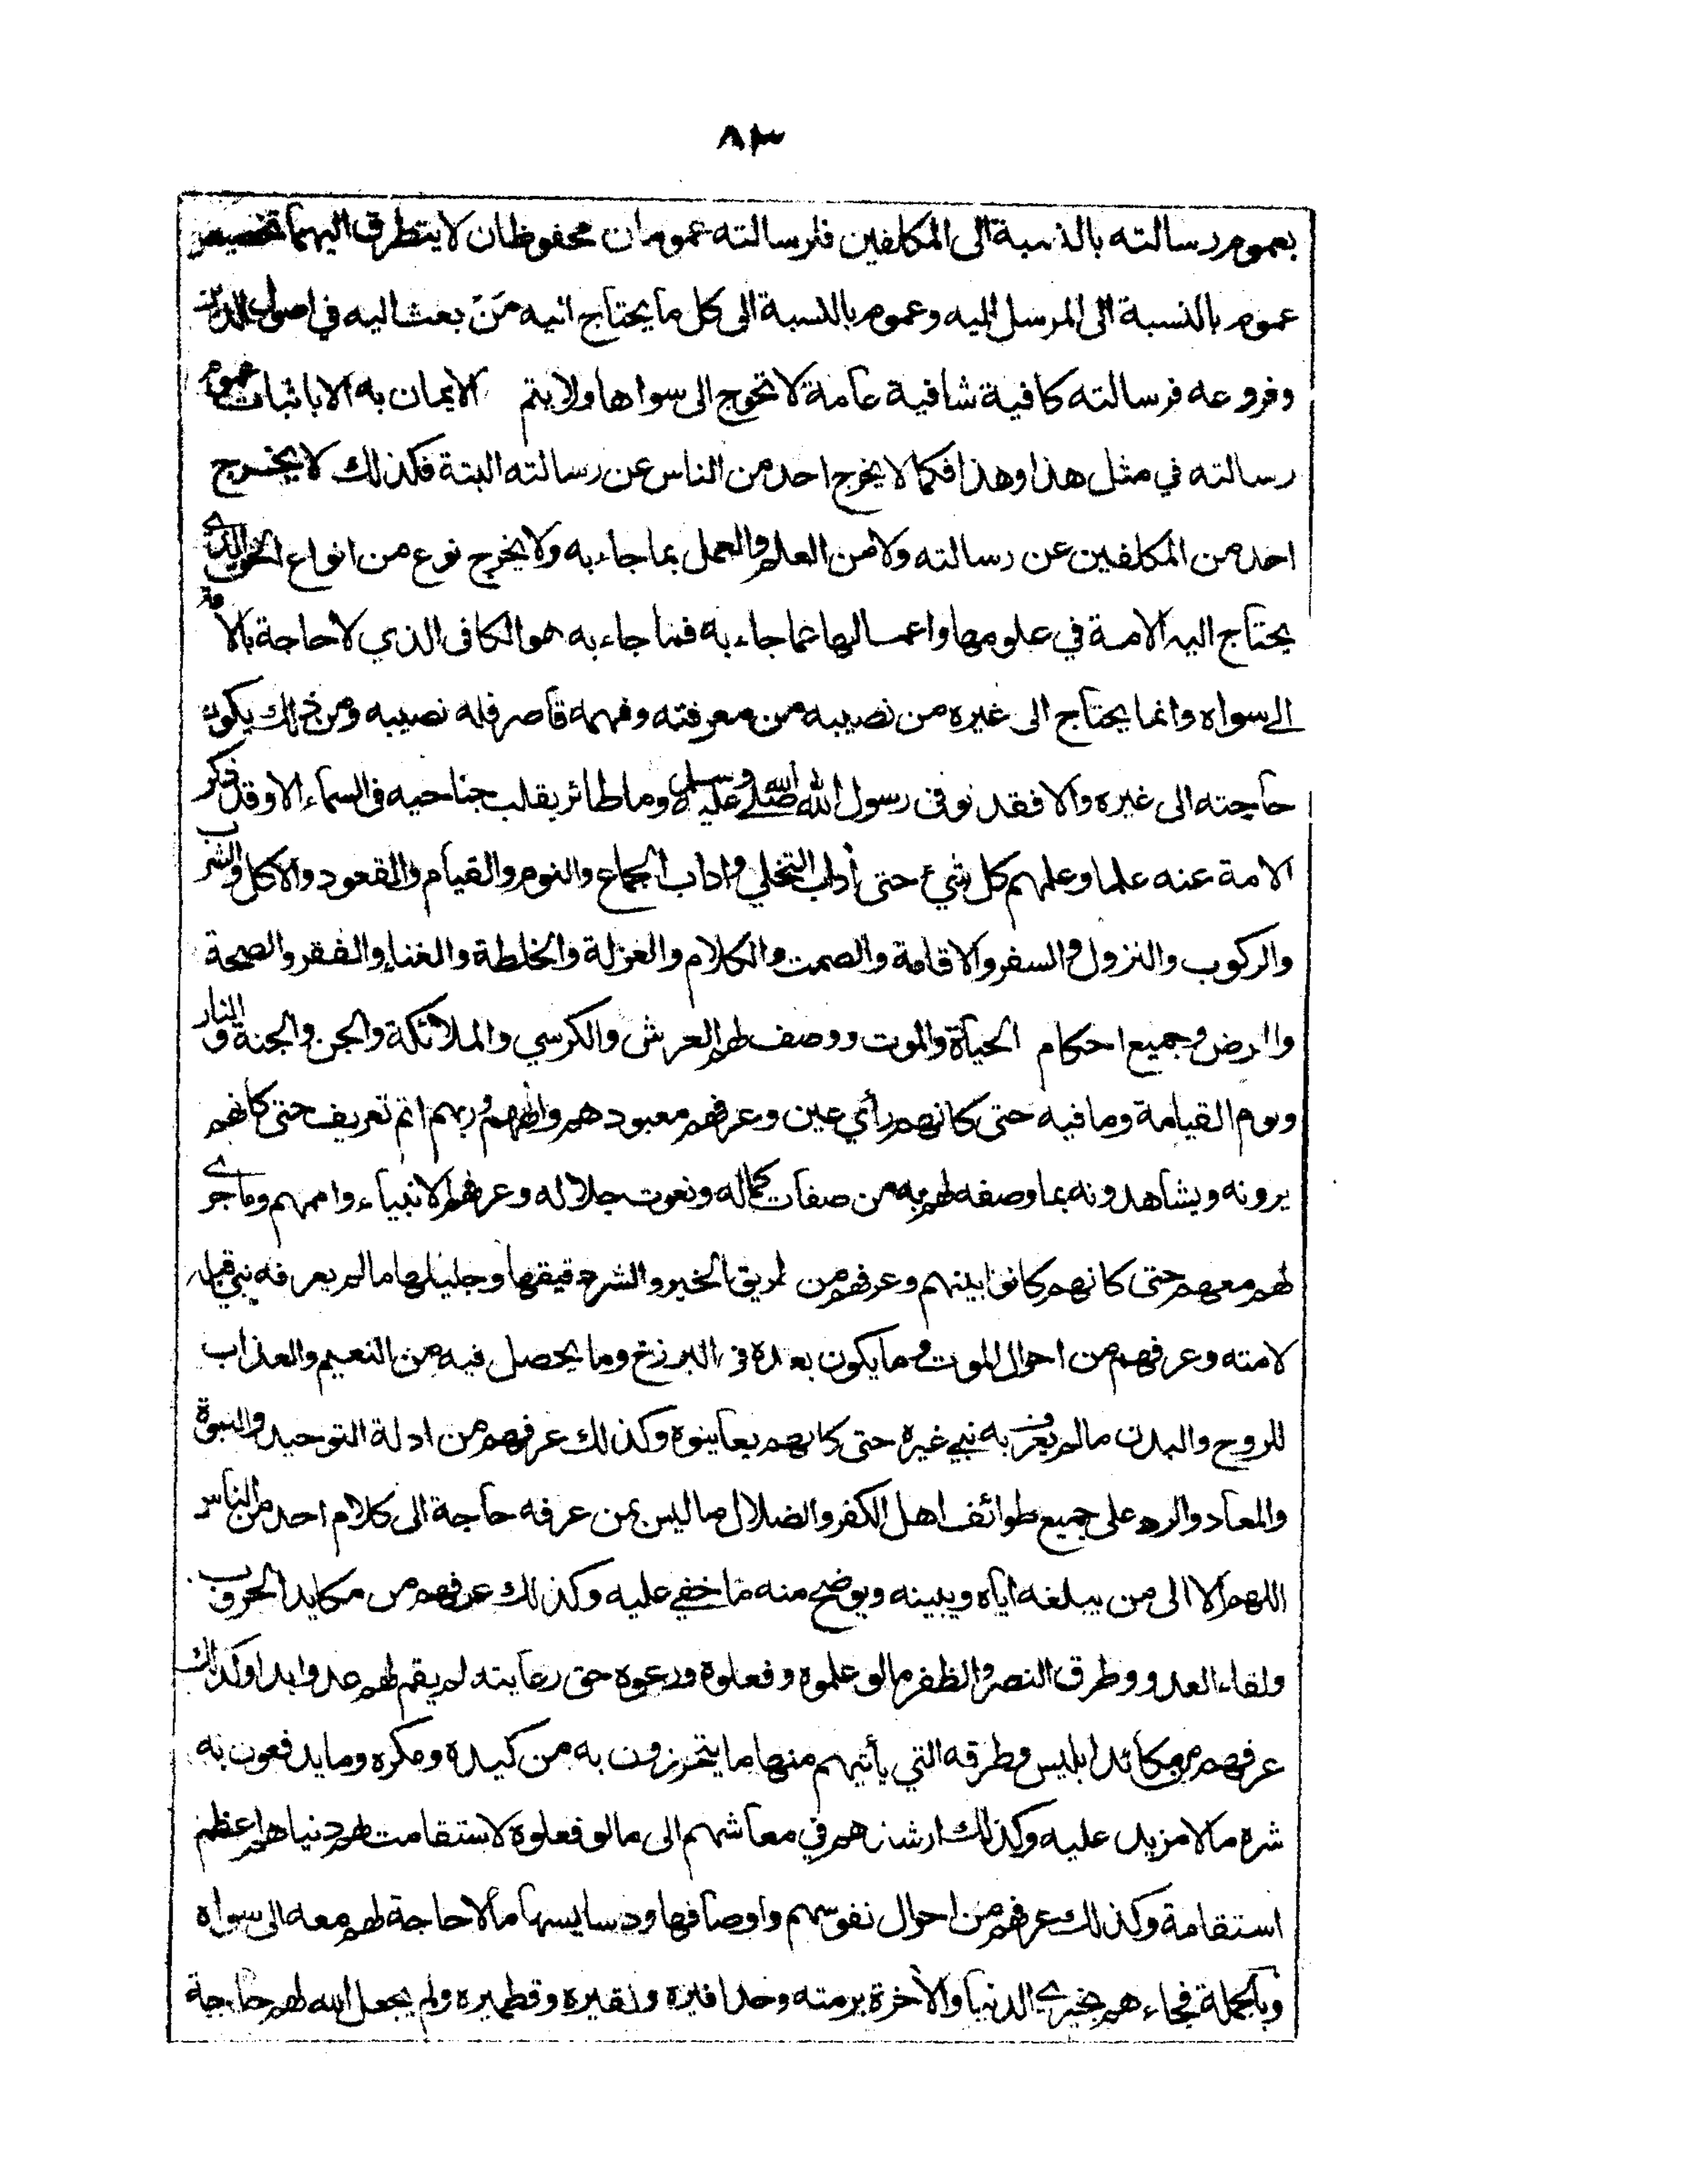 ٨٣
بعموم رسالته بالنسبة الى المكلفين فلرسالته عمومان محفوظان لا يتطرق اليهما تخصيص
عموم بالنسبة الى المرسل اليه وعموم بالنسبة الى كل ما يحتاج اليه مَنْ بعث اليه في اصول الدين
وفروعه فرسالته كافية شافية عامة لا تحوج الى سواها ولا يتم الايمان به الا باثبات عموم
رسالته في مثل هذا وهذا فكما لا يخرج احد من الناس عن رسالته البتة فكذلك لا يخرج
احد من المكلفين عن رسالته ولا من العلم والعمل بما جاء به ولا يخرج نوع من انواع الحق الذي
يحتاج اليه الامة في علومها واعمالها عما جاء به فما جاء به هو الكافى الذي لا حاجة بالامة
الى سواه وانما يحتاج الى غيره من نصيبه من معرفته وفهمه قاصر فله نصيبه ومن ذلك يكون
حاجته الى غيره والا فقد توفى رسول الله صلى الله عليه وسلم وما طائر يقلب جناحيه فى السماء الا وقد ذكر
الامة عنه علما وعلمهم كل شيء حتى أداب التخلي واداب الجماع والنوم والقيام والقعود والاكل والشرب
والركوب والنزول والسفر والاقامة والصمت والكلام والعزلة والخلطة والغناء والفقر والصحة
والمرض وجميع احكام الحياة والموت ووصف لهم العرش والكرسي والملائكة والجن والجنة والنار
ويوم القيامة وما فيه حتى كانهم رأي عين وعرفهم معبودهم والههم وربهم اتم تعريف حتى كانهم
يرونه ويشاهدونه بما وصفه لهم به من صفات كماله ونعوت جلاله وعرفهم الانبياء واممهم وما جرى
لهم معهم حتى كانهم كانوا بينهم وعرفهم من طريق الخير والشر دقيقها وجليلها ما لم يعرفه نبي قبله
لامته وعرفهم من احوال الموت وما يكون بعده فى البرزخ وما يحصل فيه من النعيم والعذاب
للروح والبدن ما لم يعرف به نبي غيره حتى كانهم يعاينوه وكذلك عرفهم من ادلة التوحيد والنبوة
والمعاد والرد على جميع طوائف اهل الكفر والضلال ما ليس بمن عرفه حاجة الى كلام احد من الناس
اللهم الا الى من يبلغه اياه ويبينه ويوضح منه ما خفي عليه وكذلك عرفهم من مكايد الحروب
ولقاء العدو وطرق النصر والظفر ما لو علموه وفعلوه ورعوه حق رعايته لم يقم لهم عدو ابدا وكذلك
عرفهم من مكائد ابليس وطرقه التي يأتيهم منها ما يتحرزون به من كيده ومكره وما يدفعون به
شره ما لا مزيد عليه وكذلك ارشدهم في معاشهم الى ما لو فعلوه لاستقامت لهم دنياهم اعظم
استقامة وكذلك عرفهم من احوال نفوسهم واوصافها ودسايسها ما لا حاجة لهم معه الى سواه
وبالجملة فجاءهم بخيري الدنيا والأخرة برمته وحذافيره ونقيره وقطميره ولم يجعل الله لهم حاجة